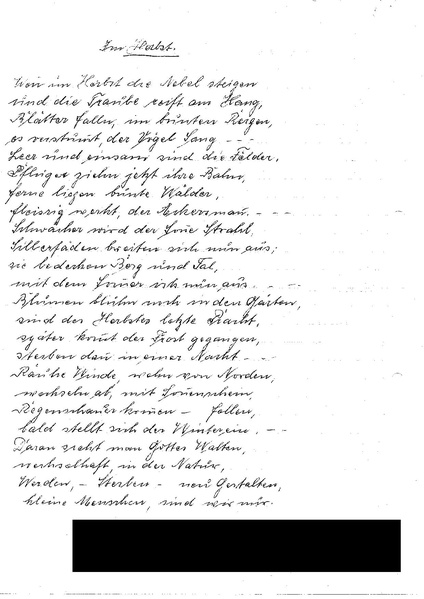 Im Herbst.
Wen im Herbst die Nebel steigen
und die Traube reift am Hang,
Blätter falln, im bunten Reigen,
es verstumt, der Vögel Sang - - -
Leer und einsam sind die Felder,
Pflüger ziehn jetzt ihre Bahn,
ferne liegen bunte Wälder,
fleissig werkt, der Ackersman. - - -
Schwächer wird der Sone Strahl,
Silberfäden breiten sich nun aus;
sie bedecken Berg und Tal,
mit dem Somer ists nun aus. - - -
Blumen blühn noch in den Gärten,
sind des Herbstes letzte Pracht,
später komt der Frost gegangen,
sterben dan in einer Nacht - - -
Rauhe Winde, wehn von Norden,
wechseln ab, mit Sonenschein,
Regenschauer komen - fallen,
bald stellt sich der Winter ein. - - -
Daran sieht man Gottes Walten,
wechselhaft, in der Natur,
Werden, - Sterben - neu Gestalten,
kleine Menschen, sind wir nur.